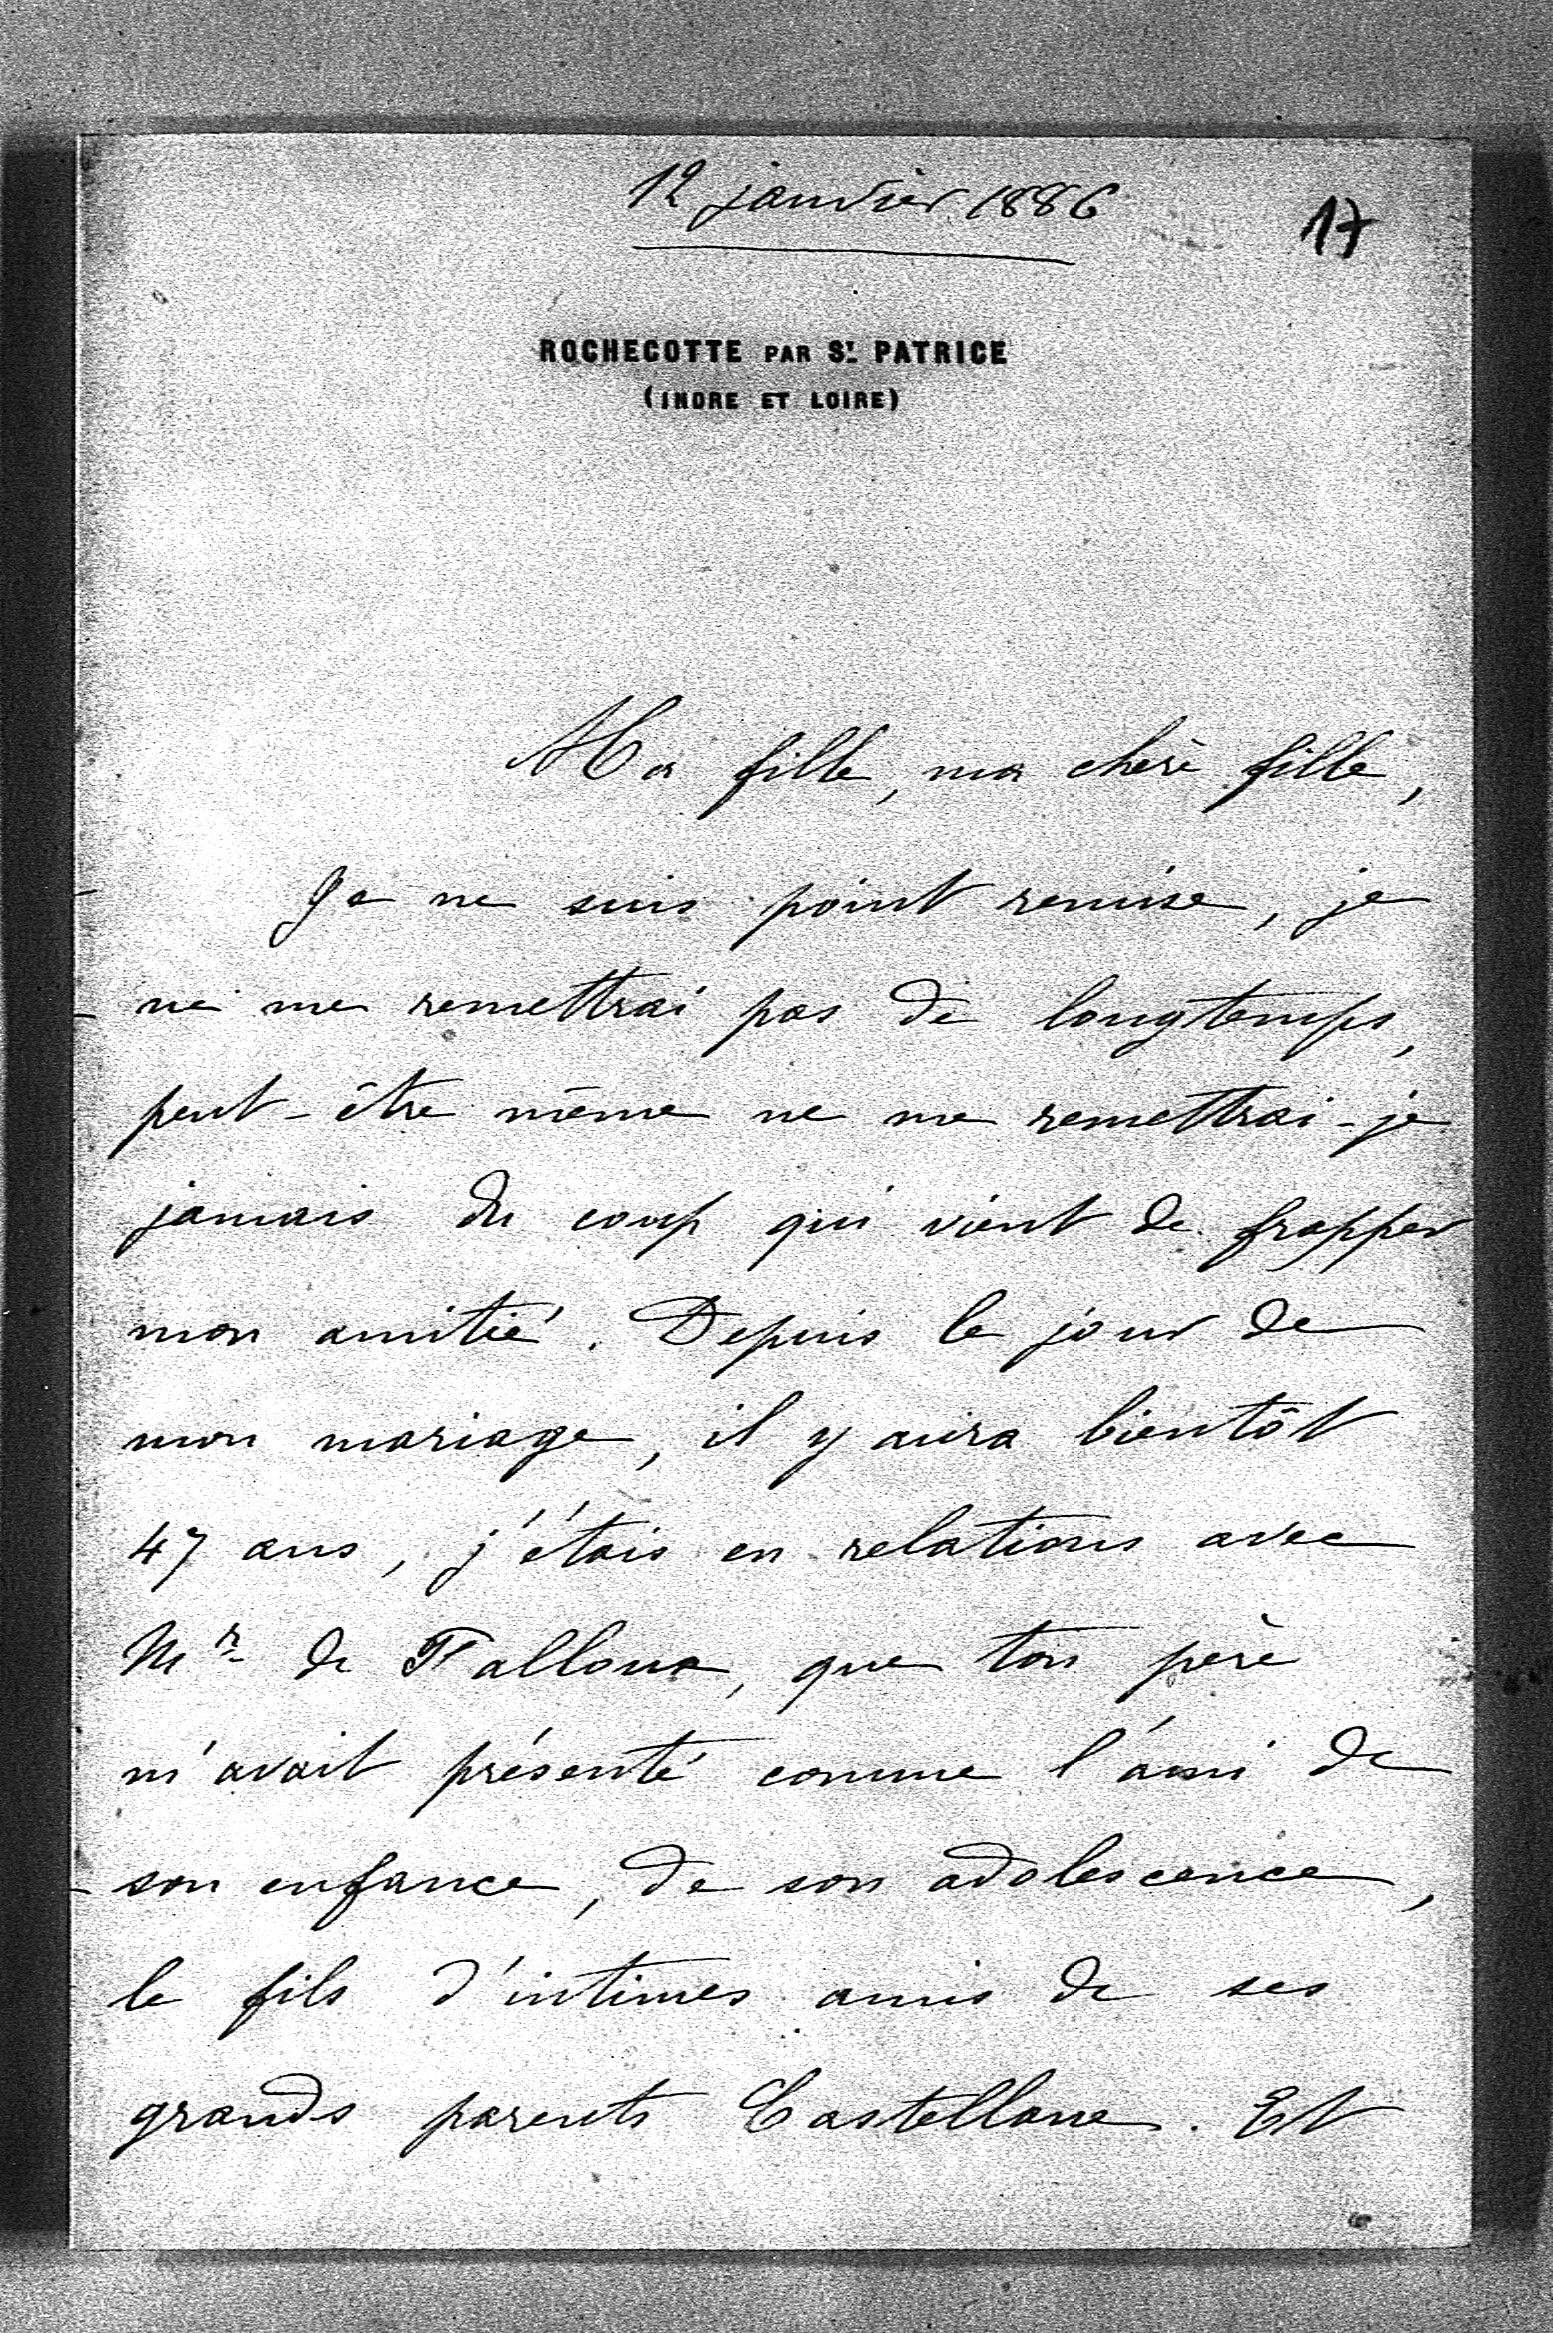 12 janvier 1886
17
ROCHECOTTE PAR ST. PATRICE
(INDRE ET LOIRE)
Ma fille, ma chère fille,
Je ne suis point remise, je
ne me remettrai pas de longtemps,
peut-être même ne me remettrai-je
jamais du coup qui vient de frapper
mon amitié. Depuis le jour de
mon mariage, il y aura bientôt
47 ans, j'étais en relations avec
Mr de Falloux, que ton père
m'avait présenté comme l'ami de
son enfance, de son adolescence,
le fils d'intimes amis de ses
grands parents Castellane. Et